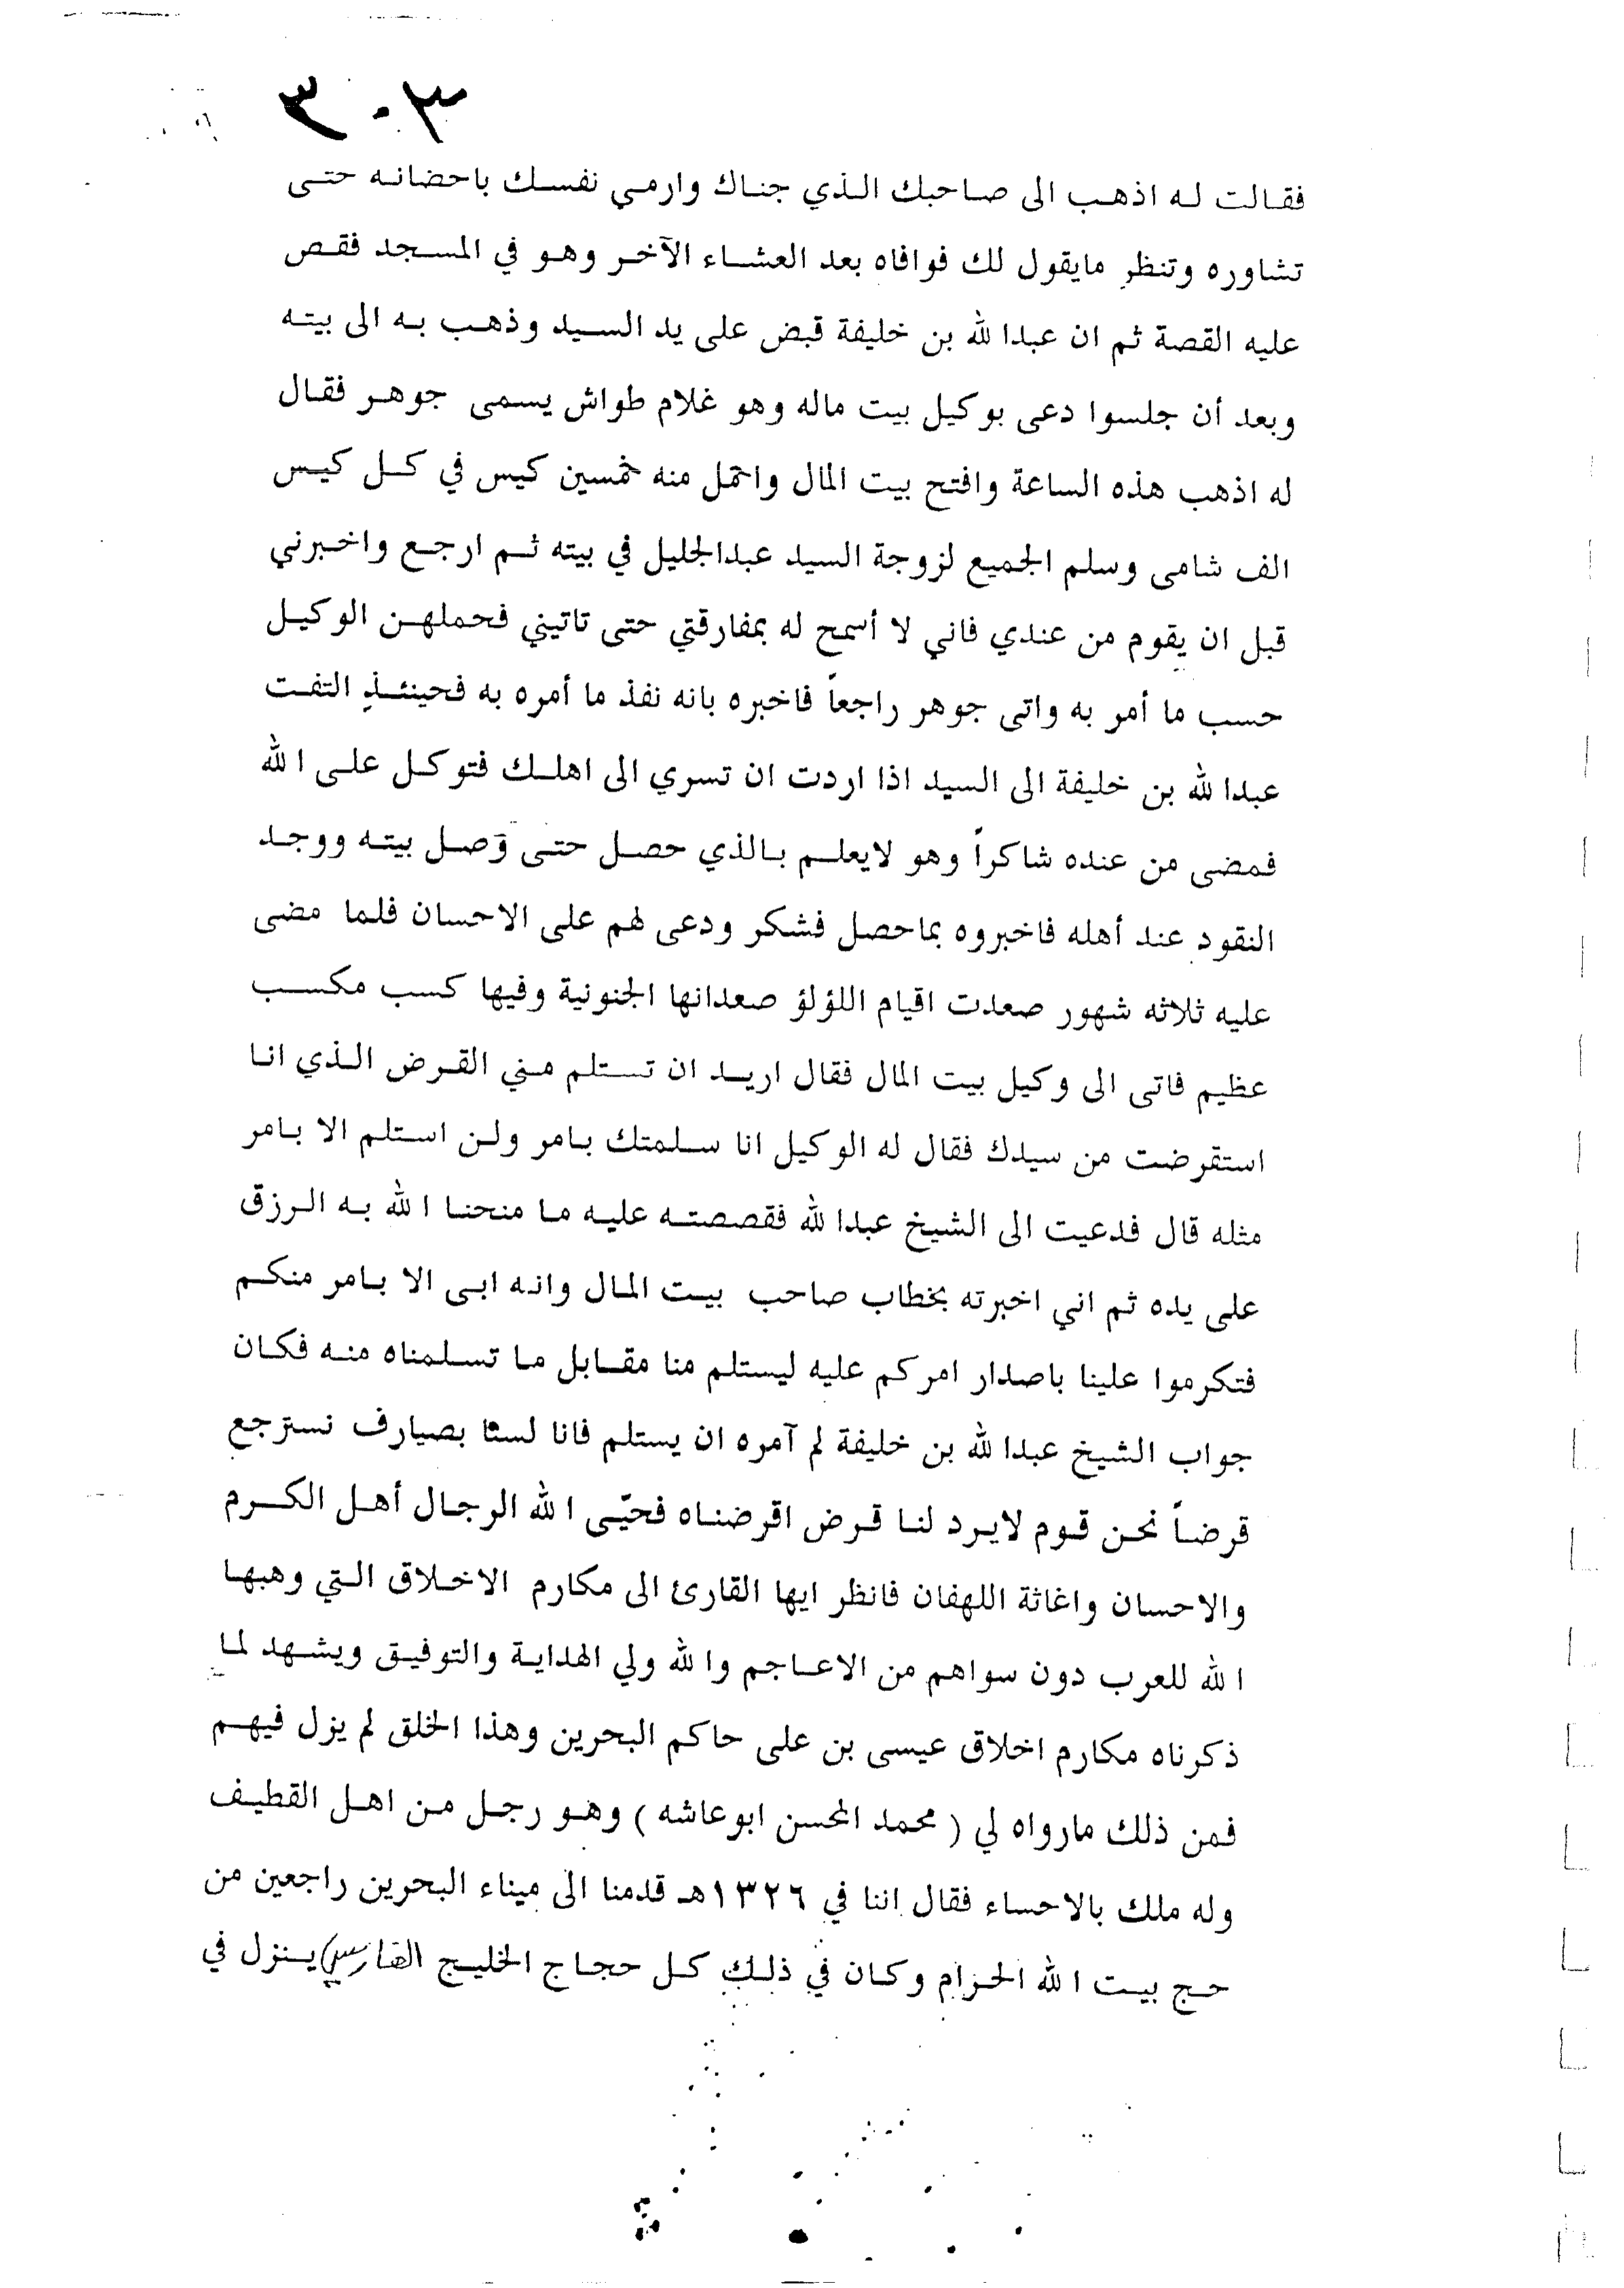 ٣٠٣
فقالت له اذهب الى صاحبك الذي جناك وارمي نفسك باحضانه حتى
تشاوره وتنظر مايقول لك فوافاه بعد العشاء الآخر وهو في المسجد فقص
عليه القصة ثم ان عبدالله بن خليفة قبض على يد السيد وذهب به الى بيته
وبعد أن جلسوا دعى بوكيل بيت ماله وهو غلام طواش يسمى جوهر فقال
له اذهب هذه الساعة وافتح بيت المال واحمل منه خمسين كيس في كل كيس
الف شامى وسلم الجميع لزوجة السيد عبدالجليل في بيته ثم ارجع واخبرني
قبل ان يقوم من عندي فاني لا أسمح له بمفارقتي حتى تاتيني فحملهن الوكيل
حسب ما أمر به واتى جوهر راجعاً فاخبره بانه نفذ ما أمره به فحينئذٍ التفت
عبدالله بن خليفة الى السيد اذا اردت ان تسري الى اهلك فتوكل على الله
فمضى من عنده شاكراً وهو لايعلم بالذي حصل حتى وصل بيته ووجد
النقود عند أهله فاخبروه بماحصل فشكر ودعى لهم على الاحسان فلما مضى
عليه ثلاثه شهور صعدت اقيام اللؤلؤ صعدانها الجنونية وفيها كسب مكسب
عظيم فاتى الى وكيل بيت المال فقال اريد ان تستلم مني القرض الذي انا
استقرضت من سيدك فقال له الوكيل انا سلمتك بامر ولن استلم الا بامر
مثله قال فدعيت الى الشيخ عبدالله فقصصته عليه ما منحنا الله به الرزق
على يده ثم اني اخبرته بخطاب صاحب بيت المال وانه ابى الا بامر منكم
فتكرموا علينا باصدار امركم عليه ليستلم منا مقابل ما تسلمناه منه فكان
جواب الشيخ عبدالله بن خليفة لم آمره ان يستلم فانا لسنا بصيارف نسترجع
قرضاً نحن قوم لايرد لنا قرض اقرضناه فحيّى الله الرجال أهل الكرم
والاحسان واغاثة اللهفان فانظر ايها القارئ الى مكارم الاخلاق التي وهبها
الله للعرب دون سواهم من الاعاجم والله ولي الهداية والتوفيق ويشهد لما
ذكرناه مكارم اخلاق عيسى بن على حاكم البحرين وهذا الخلق لم يزل فيهم
فمن ذلك مارواه لي ( محمد المحسن ابوعاشه ) وهو رجل من اهل القطيف
وله ملك بالاحساء فقال اننا في ١٣٢٦هـ قدمنا الى ميناء البحرين راجعين من
حج بيت الله الحرام وكان في ذلك كل حجاج الخليج الفارسي ينزل في